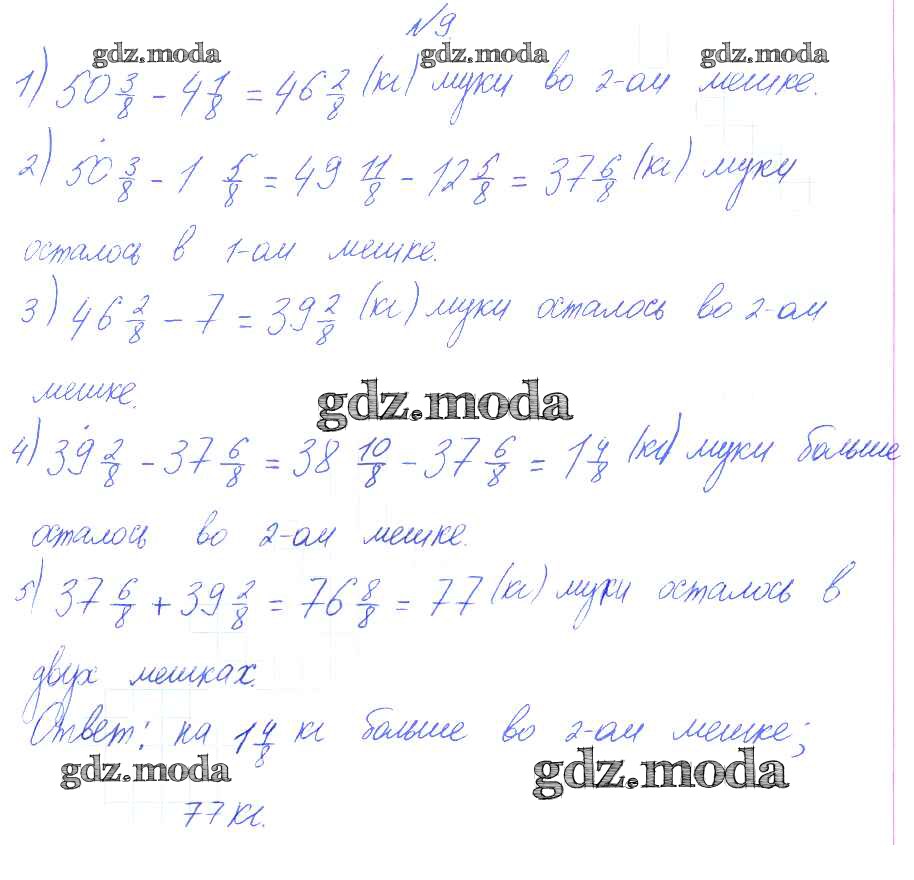 №9
gdz.moda gdz.moda gdz.moda
1) 50 3/8 - 4 1/8 = 46 2/8 (кг) муки во 2-ом мешке.
2) 50 3/8 - 1 5/8 = 49 11/8 - 12 5/8 = 37 6/8 (кг) муки
осталось в 1-ом мешке.
3) 46 2/8 - 7 = 39 2/8 (кг) муки осталось во 2-ом
мешке.
gdz.moda
4) 39 2/8 - 37 6/8 = 38 10/8 - 37 6/8 = 1 4/8 (кг) муки больше
осталось во 2-ом мешке.
5) 37 6/8 + 39 2/8 = 76 8/8 = 77 (кг) муки осталось в
двух мешках.
Ответ: на 1 4/8 кг больше во 2-ом мешке;
gdz.moda gdz.moda
77 кг.